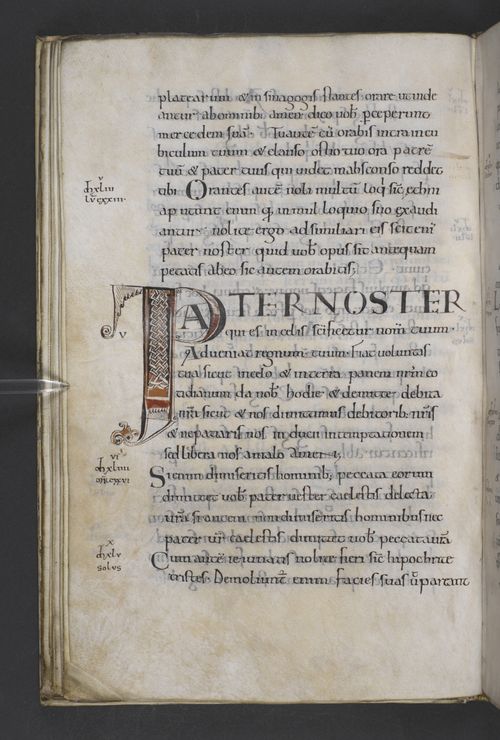 platearum & in sinagogis stantes orare ut uide
antur ab hominibꝰ amen dico uob̄ perceperunt
mercedem suā · Tu autē cū orabis intra in cu
biculum tuum & clauso ostio tuo ora patrē
tuū & pater tuus qui uidet in absconso reddet
tibi · Orantes autē nolite
enim in multiloquio suo exaudi
antur · nolite ergo adsimilari eis scit enī
pater noster quid uob̄ opus sit antequam
petatis ab eo sic autem orabitis;
PATER NOSTER
qui es in celis scificetur nom̄ tuum ·
Adueniat regnum tuum · Fiat uoluntas
tua sicut in celo & in terra panem nr̄m co
tidianum da nob̄ hodie & demitte debita
nr̄a sicut & nos dimittimus debitorib; nr̄is
& ne patiaris nos in temptationem
sed libera nos a malo amen
Si enim dimiseritis hominib; peccata eorum
dimittet uob̄ pater uester caelestis delecta
ur̄a si autem non dimiseritis hominibus nec
pater ur̄ caelestis dimittet uob̄ peccata ur̄a
Cum autē ieiunatis nolite fieri sic̄ hipochritę
tristes · Demoliunt̄ enim facies suas ut̄ pareant
v
solus